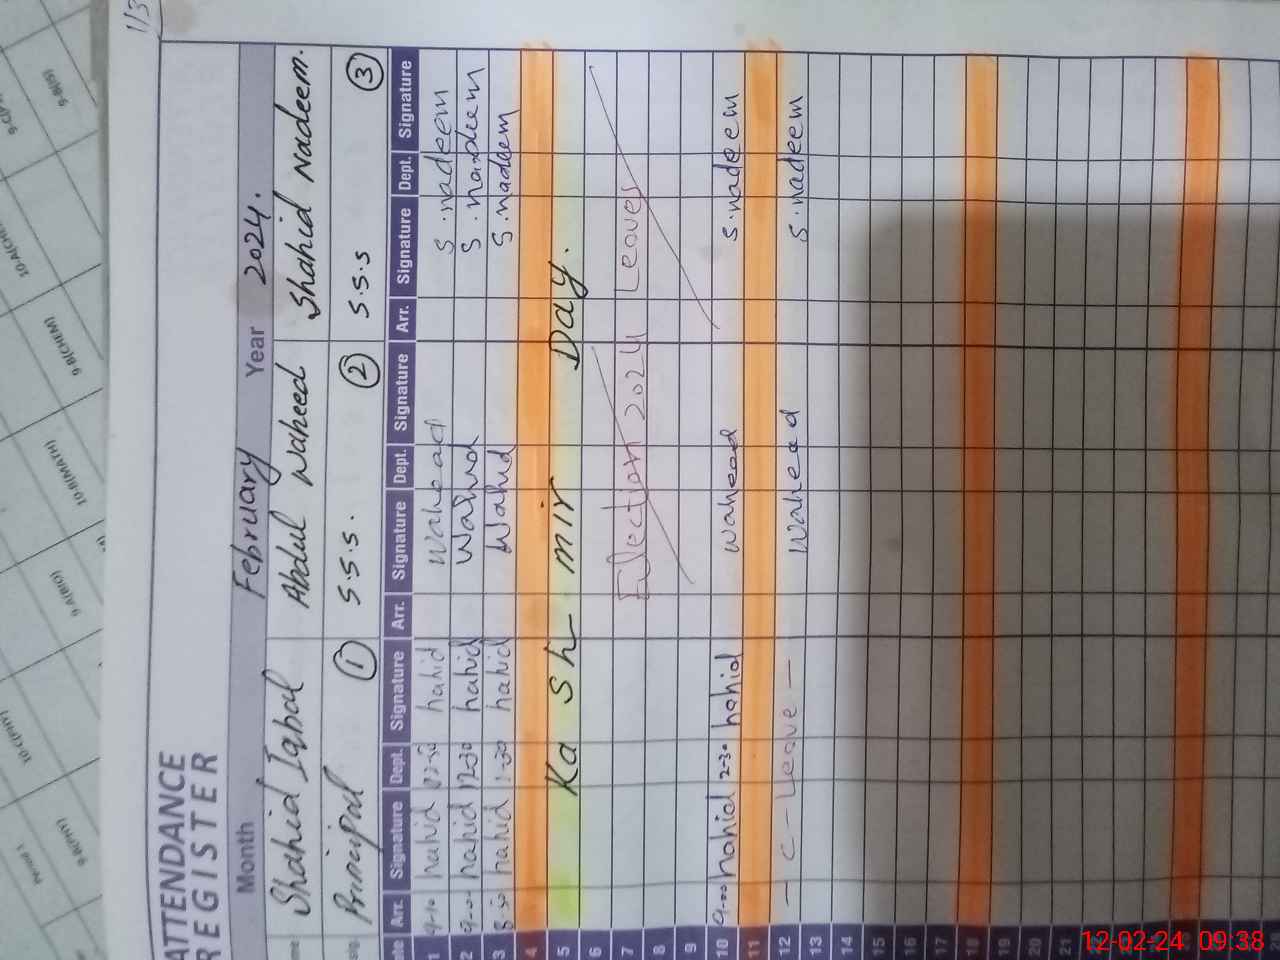 113
ATTENDANCE
REGISTER
Month February Year 2024.
Shahid Iqbal Abdul Waheed Shahid Nadeem.
Principal 1 S.S.S. 2 S.S.S 3
Arr. Signature Dept. Signature Arr. Signature Dept. Signature Arr. Signature Dept. Signature
1 9-10 hahid hahid Waheed S.nadeem
2 9-00 hahid 12-30 hahid Wahid S.nadeem
3 8-50 hahid 1-30 hahid Wahid S.nadeem
4
5 Ka Sh mir Day.
6
7 Election 2024 Leaves
8
9
10 9-00 hahid 2-30 hahid waheed S.nadeem
11
12 - C - Leave - Waheed S.nadeem
13
14
15
16
17
18
19
20
21
9-B(S)
10-A(CHE
9-B(CHEM)
10-B(MATH)
9-A(BIO)
10-C(PHY)
9-B(PHY)
Period 1
12-02-24 09:38